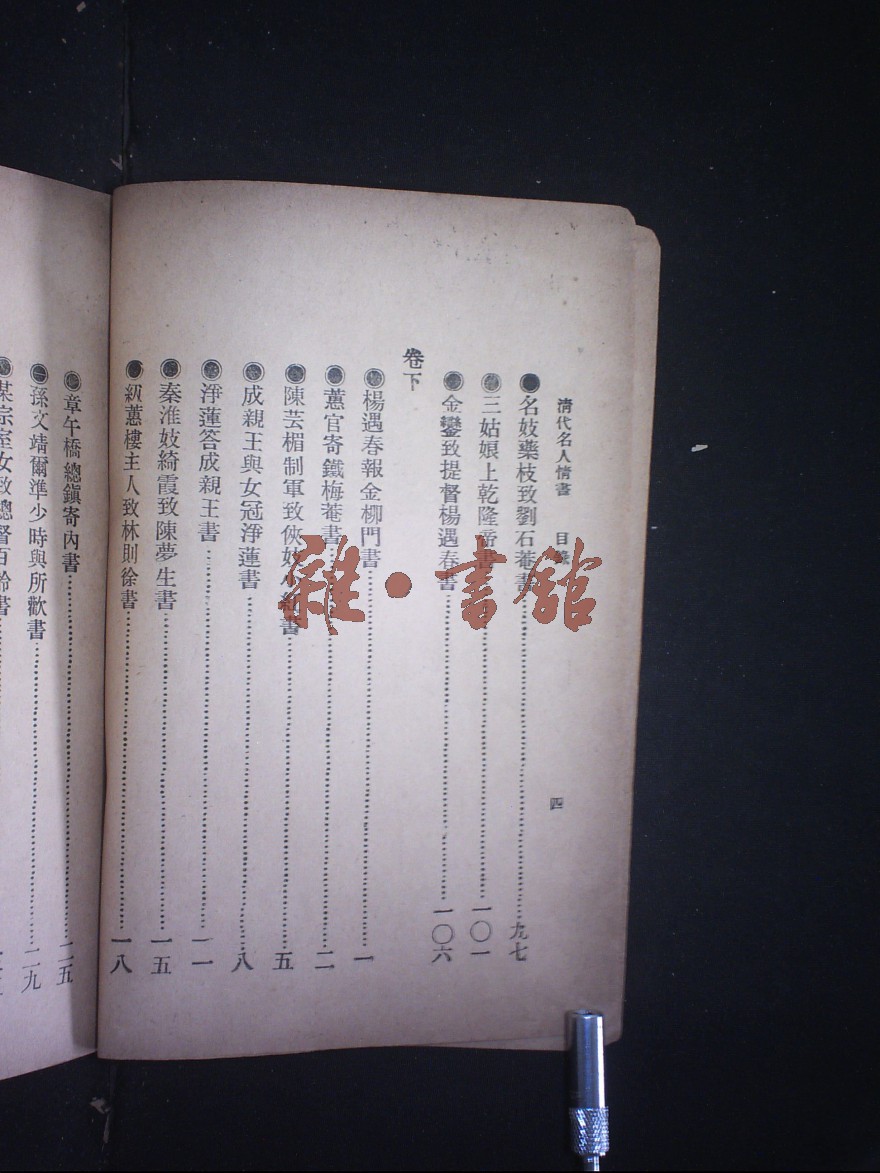 清代名人情書 目錄 四
●名妓藥枝致劉石菴書……九七
●三姑娘上乾隆帝書……一〇一
●金鑾致提督楊遇春書……一〇六
卷下
●楊遇春報金柳門書……一
●蕙官寄鐵梅菴書……二
●陳芸楣制軍致俠妓小紅書……五
●成親王與女冠淨蓮書……八
●淨蓮答成親王書……一一
●秦淮妓綺霞致陳夢生書……一五
●紉蕙樓主人致林則徐書……一八
●章午橋總鎭寄內書……二五
●孫文靖爾準少時與所歡書……二九
●某宗室女致總督百齡書……
雜·書館